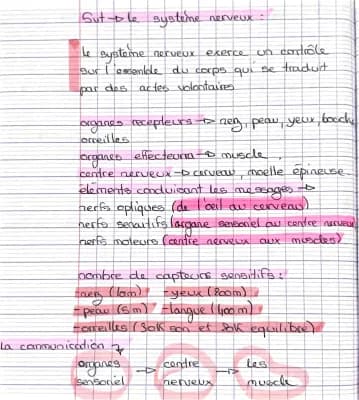 Sut → le système nerveux :
le système nerveux exerce un contrôle
sur l'ensemble du corps qui se traduit
par des actes volontaires
organes recepteurs → nez, peau, yeux, bouche
oreilles
organes effecteurs → muscle,
centre nerveux → cerveau, moelle épineuse
éléments conduisant les messages →
nerfs optiques (de l'œil au cerveau)
nerfs sensitifs (organe sensoriel au centre nerveux
nerfs moteurs (centre nerveux aux muscles)
nombre de capteurs sensitifs :
-nez (10m) -yeux (200m)
-peau (5m) -langue (400m)
-oreilles (30K son et 20K equilibre)
la communication
organes → centre → Les
sensoriel nerveux muscle